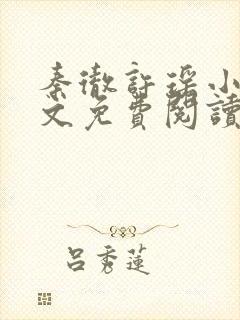 秦徹許瑤小
文免費閱讀
呂秀蓮